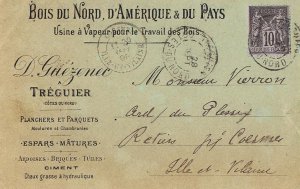 BOIS DU NORD, D'AMÉRIQUE & DU PAYS
Usine à Vapeur pour le Travail des Bois
D. Guézenec
TRÉGUIER
(CÔTES-DU-NORD)
PLANCHERS et PARQUETS
Moulures et Chambranles
ESPARS - MÂTURES
ARDOISES - BRIQUES - TUILES
CIMENT
Chaux grasse & hydraulique
Monsieur Vierron
Ard/ du Plessix
Retiers par Coesmes
Ille et Vilaine
10